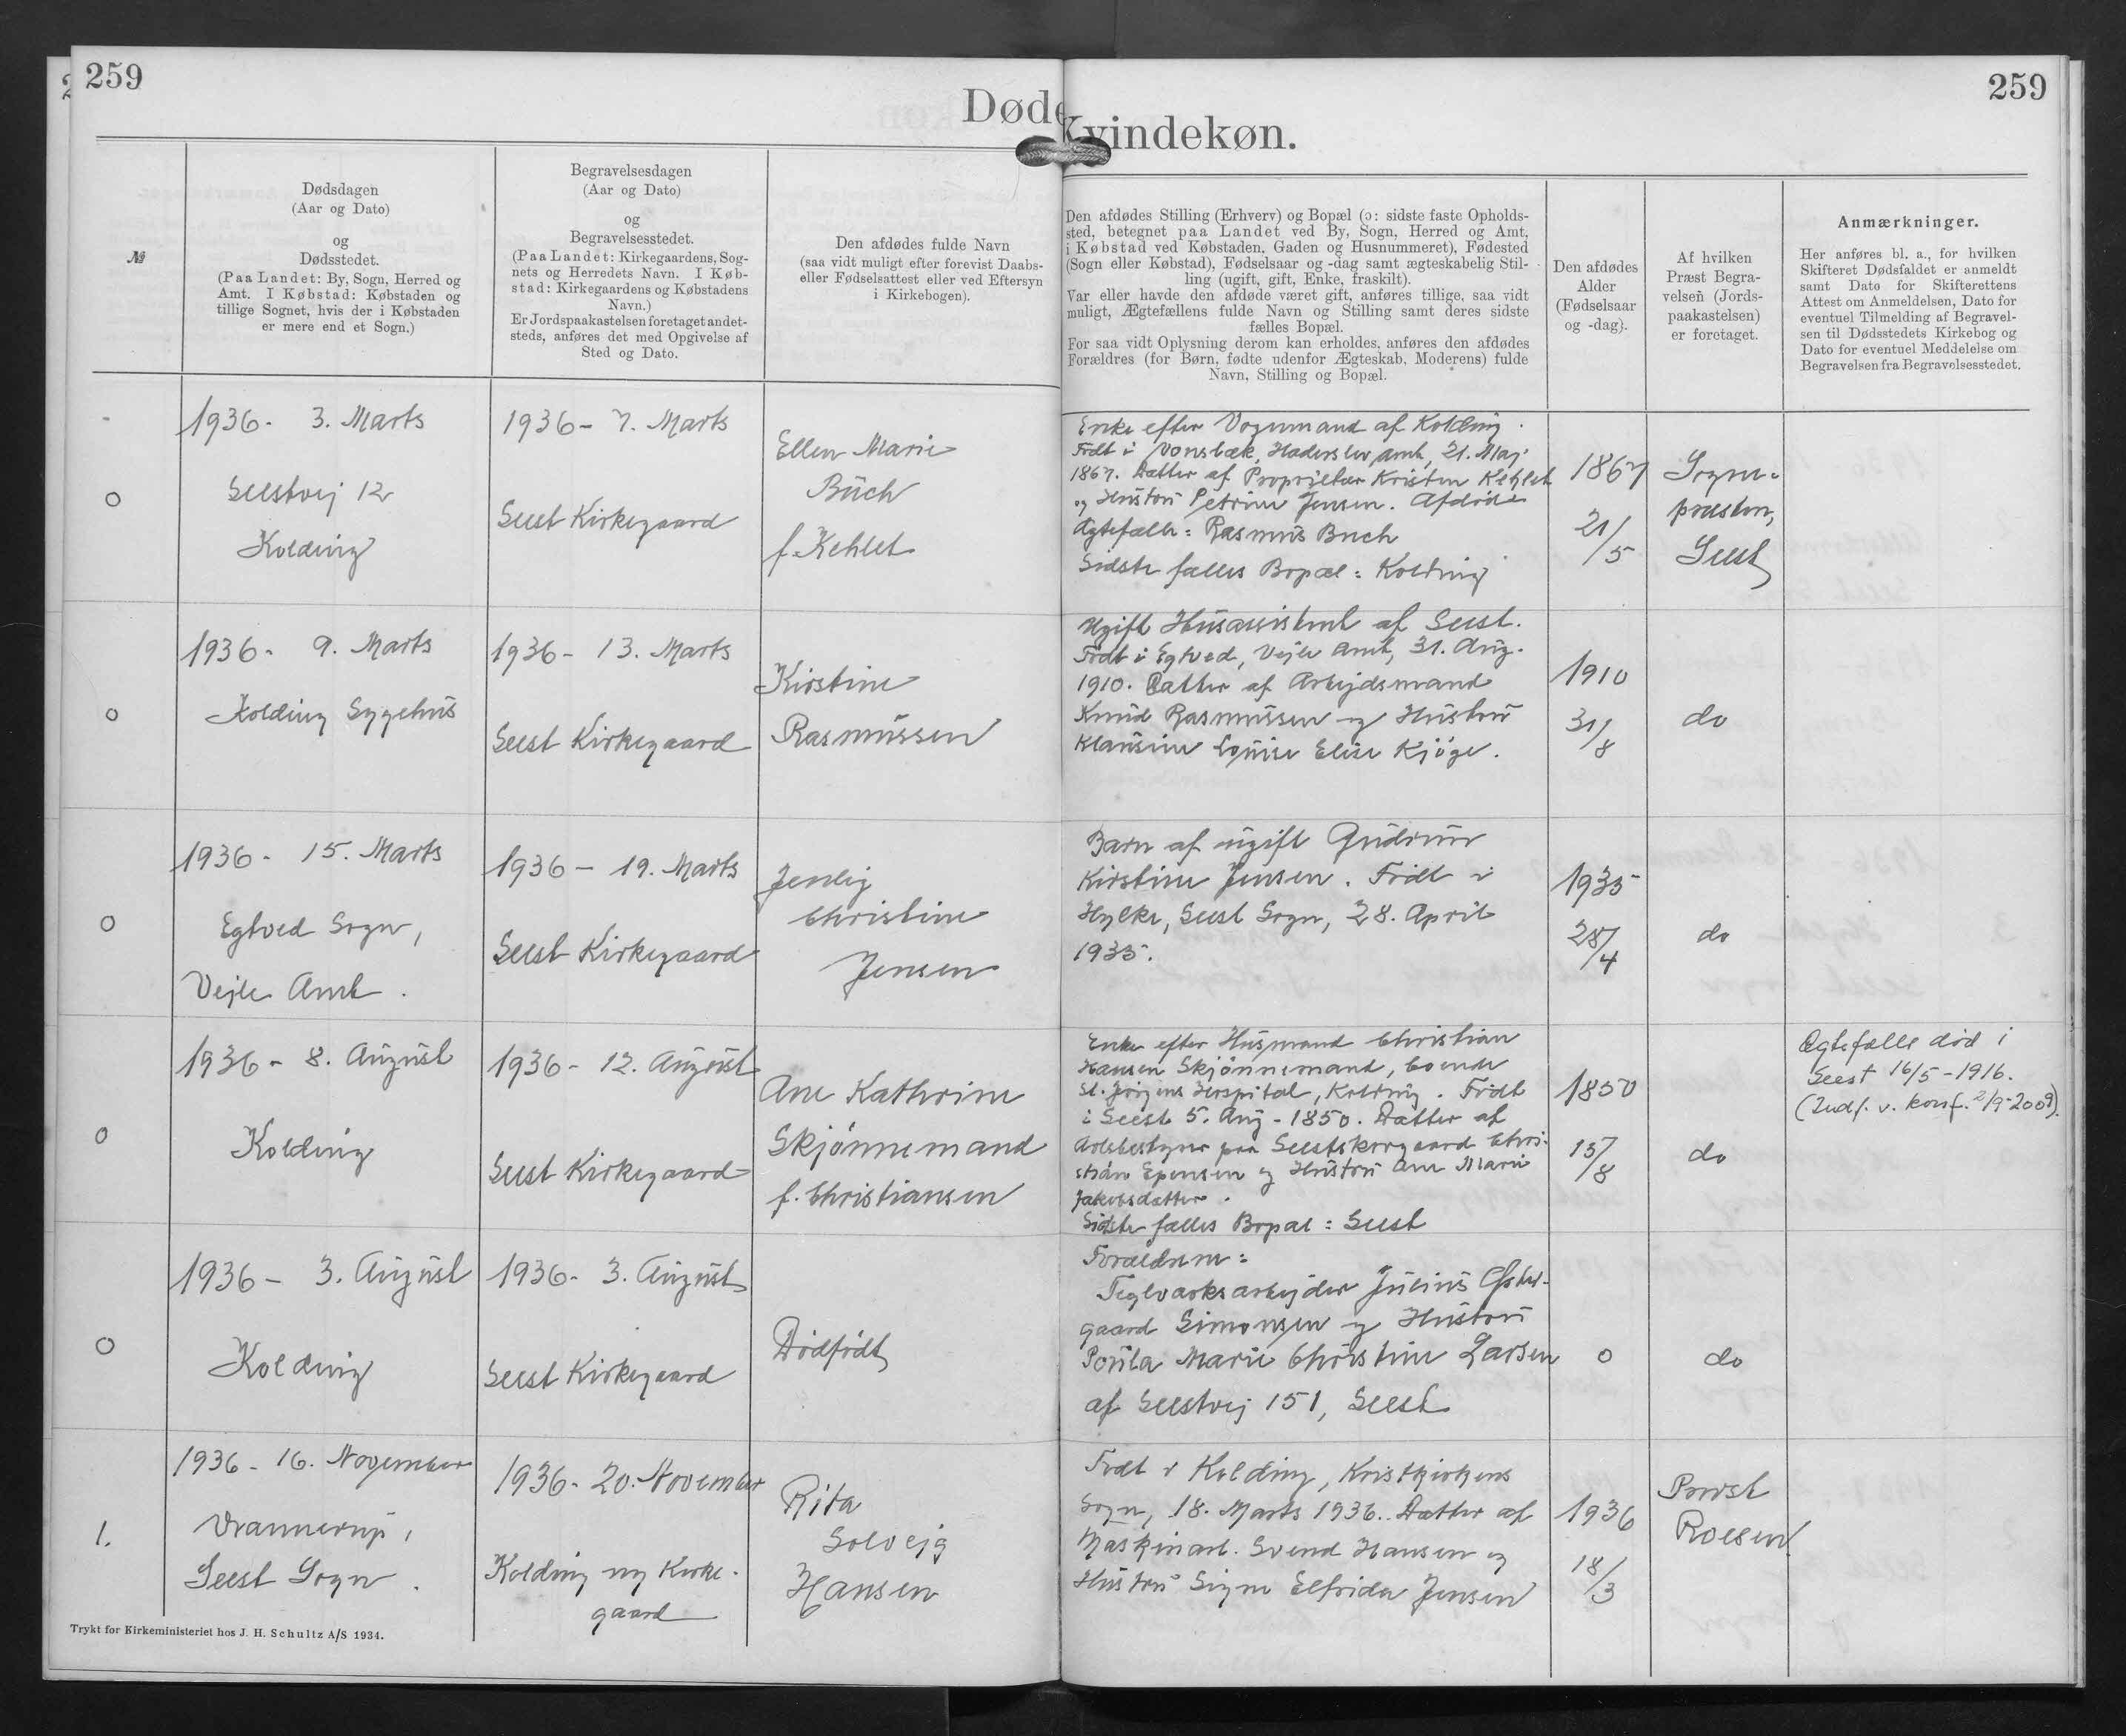 259
Døde
Kvindekøn.
259
№
Dødsdagen
(Aar og Dato)
og
Dødsstedet.
(Paa Landet: By, Sogn, Herred og
Amt. I Købstad: Købstaden og
tillige Sognet, hvis der i Købstaden
er mere end et Sogn.)
Begravelsesdagen
(Aar og Dato)
og
Begravelsesstedet.
(Paa Landet: Kirkegaardens, Sog-
nets og Herredets Navn. I Køb-
stad: Kirkegaardens og Købstadens
Navn.)
Er Jordspaakastelsen foretaget andet-
steds, anføres det med Opgivelse af
Sted og Dato.
Den afdødes fulde Navn
(saa vidt muligt efter forevist Daabs-
eller Fødselsattest eller ved Eftersyn
i Kirkebogen).
Den afdødes Stilling (Erhverv) og Bopæl (ɔ: sidste faste Opholds-
sted, betegnet paa Landet ved By, Sogn, Herred og Amt,
i Købstad ved Købstaden, Gaden og Husnummeret), Fødested
(Sogn eller Købstad), Fødselsaar og -dag samt ægteskabelig Stil-
ling (ugift, gift, Enke, fraskilt).
Var eller havde den afdøde været gift, anføres tillige, saa vidt
muligt, Ægtefællens fulde Navn og Stilling samt deres sidste
fælles Bopæl.
For saa vidt Oplysning derom kan erholdes, anføres den afdødes
Forældres (for Børn, fødte udenfor Ægteskab, Moderens) fulde
Navn, Stilling og Bopæl.
Den afdødes
Alder
(Fødselsaar
og -dag).
Af hvilken
Præst Begra-
velsen (Jords-
paakastelsen)
er foretaget.
Anmærkninger.
Her anføres bl. a., for hvilken
Skifteret Dødsfaldet er anmeldt
samt Dato for Skifterettens
Attest om Anmeldelsen, Dato for
eventuel Tilmelding af Begravel-
sen til Dødsstedets Kirkebog og
Dato for eventuel Meddelelse om
Begravelsen fra Begravelsesstedet.
0
1936 - 3. Marts
Seestvej 12
Kolding
1936 - 7. Marts
Seest Kirkegaard
Ellen Marie
Buch
f. Kehlet
Enke efter Vognmand af Kolding.
Født i Vonsbæk, Haderslev Amt, 21. Maj
1867. Datter af Proprietær Kristen Kehlet
og Hustru Petrine Jensen. Afdøde
Ægtefælle: Rasmus Buch
Sidste fælles Bopæl: Kolding
1867
21/5
Sogne-
præsten,
Seest
0
1936 - 9. Marts
Kolding Sygehus
1936 - 13. Marts
Seest Kirkegaard
Kirstine
Rasmussen
Ugift Husassistent af Seest.
Født i Egtved, Vejle Amt, 31. Aug.
1910. Datter af Arbejdsmand
Knud Rasmussen og Hustru
Klausine Louise Elise Kjöge.
1910
31/8
do
0
1936 - 15. Marts
Egtved Sogn,
Vejle Amt.
1936 - 19. Marts
Seest Kirkegaard
Christine
Jensen
Barn af ugift Gudrun
Kirstine Jensen. Født i
Hylke, Seest Sogn, 28. April
1935.
1935
28/4
do
0
1936 - 8. August
Kolding
1936 - 12. August
Seest Kirkegaard
Ane Kathrine
Skjönnemand
f. Christiansen
Enke efter Husmand Christian
Hansen Skjönnemand, boende
St. Jörgens Hospital, Kolding. Født
i Seest 5. Aug - 1850. Datter af
Avlsbestyrer paa Seestskovgaard Chri-
stian Epensen og Hustru Ane Marie
Jakobsdatter.
Sidste fælles Bopæl: Seest
1850
15/8
do
Ægtefælle död i
Seest 16/5 - 1916.
(Indf. v. konf. 2/9-2009).
0
1936 - 3. August
Kolding
1936 - 3. August
Seest Kirkegaard
Dödfødt
Forældrene:
Teglværksarbejder Julius Øster-
gaard Simonsen og Hustru
Poula Marie Christine Larsen
af Seestvej 151, Seest
0
do
1.
1936 - 16. November
Vranderup,
Seest Sogn.
1936 - 20. November
Kolding ny Kirke-
gaard
Rita
Solvejg
Hansen
Født i Kolding, Kristkirkens
Sogn, 18. Marts 1936. Datter af
Maskinarb. Svend Hansen og
Hustru Signe Elfrida Jensen
1936
18/3
Provst
Roesen.
Trykt for Kirkeministeriet hos J. H. Schultz A/S 1934.